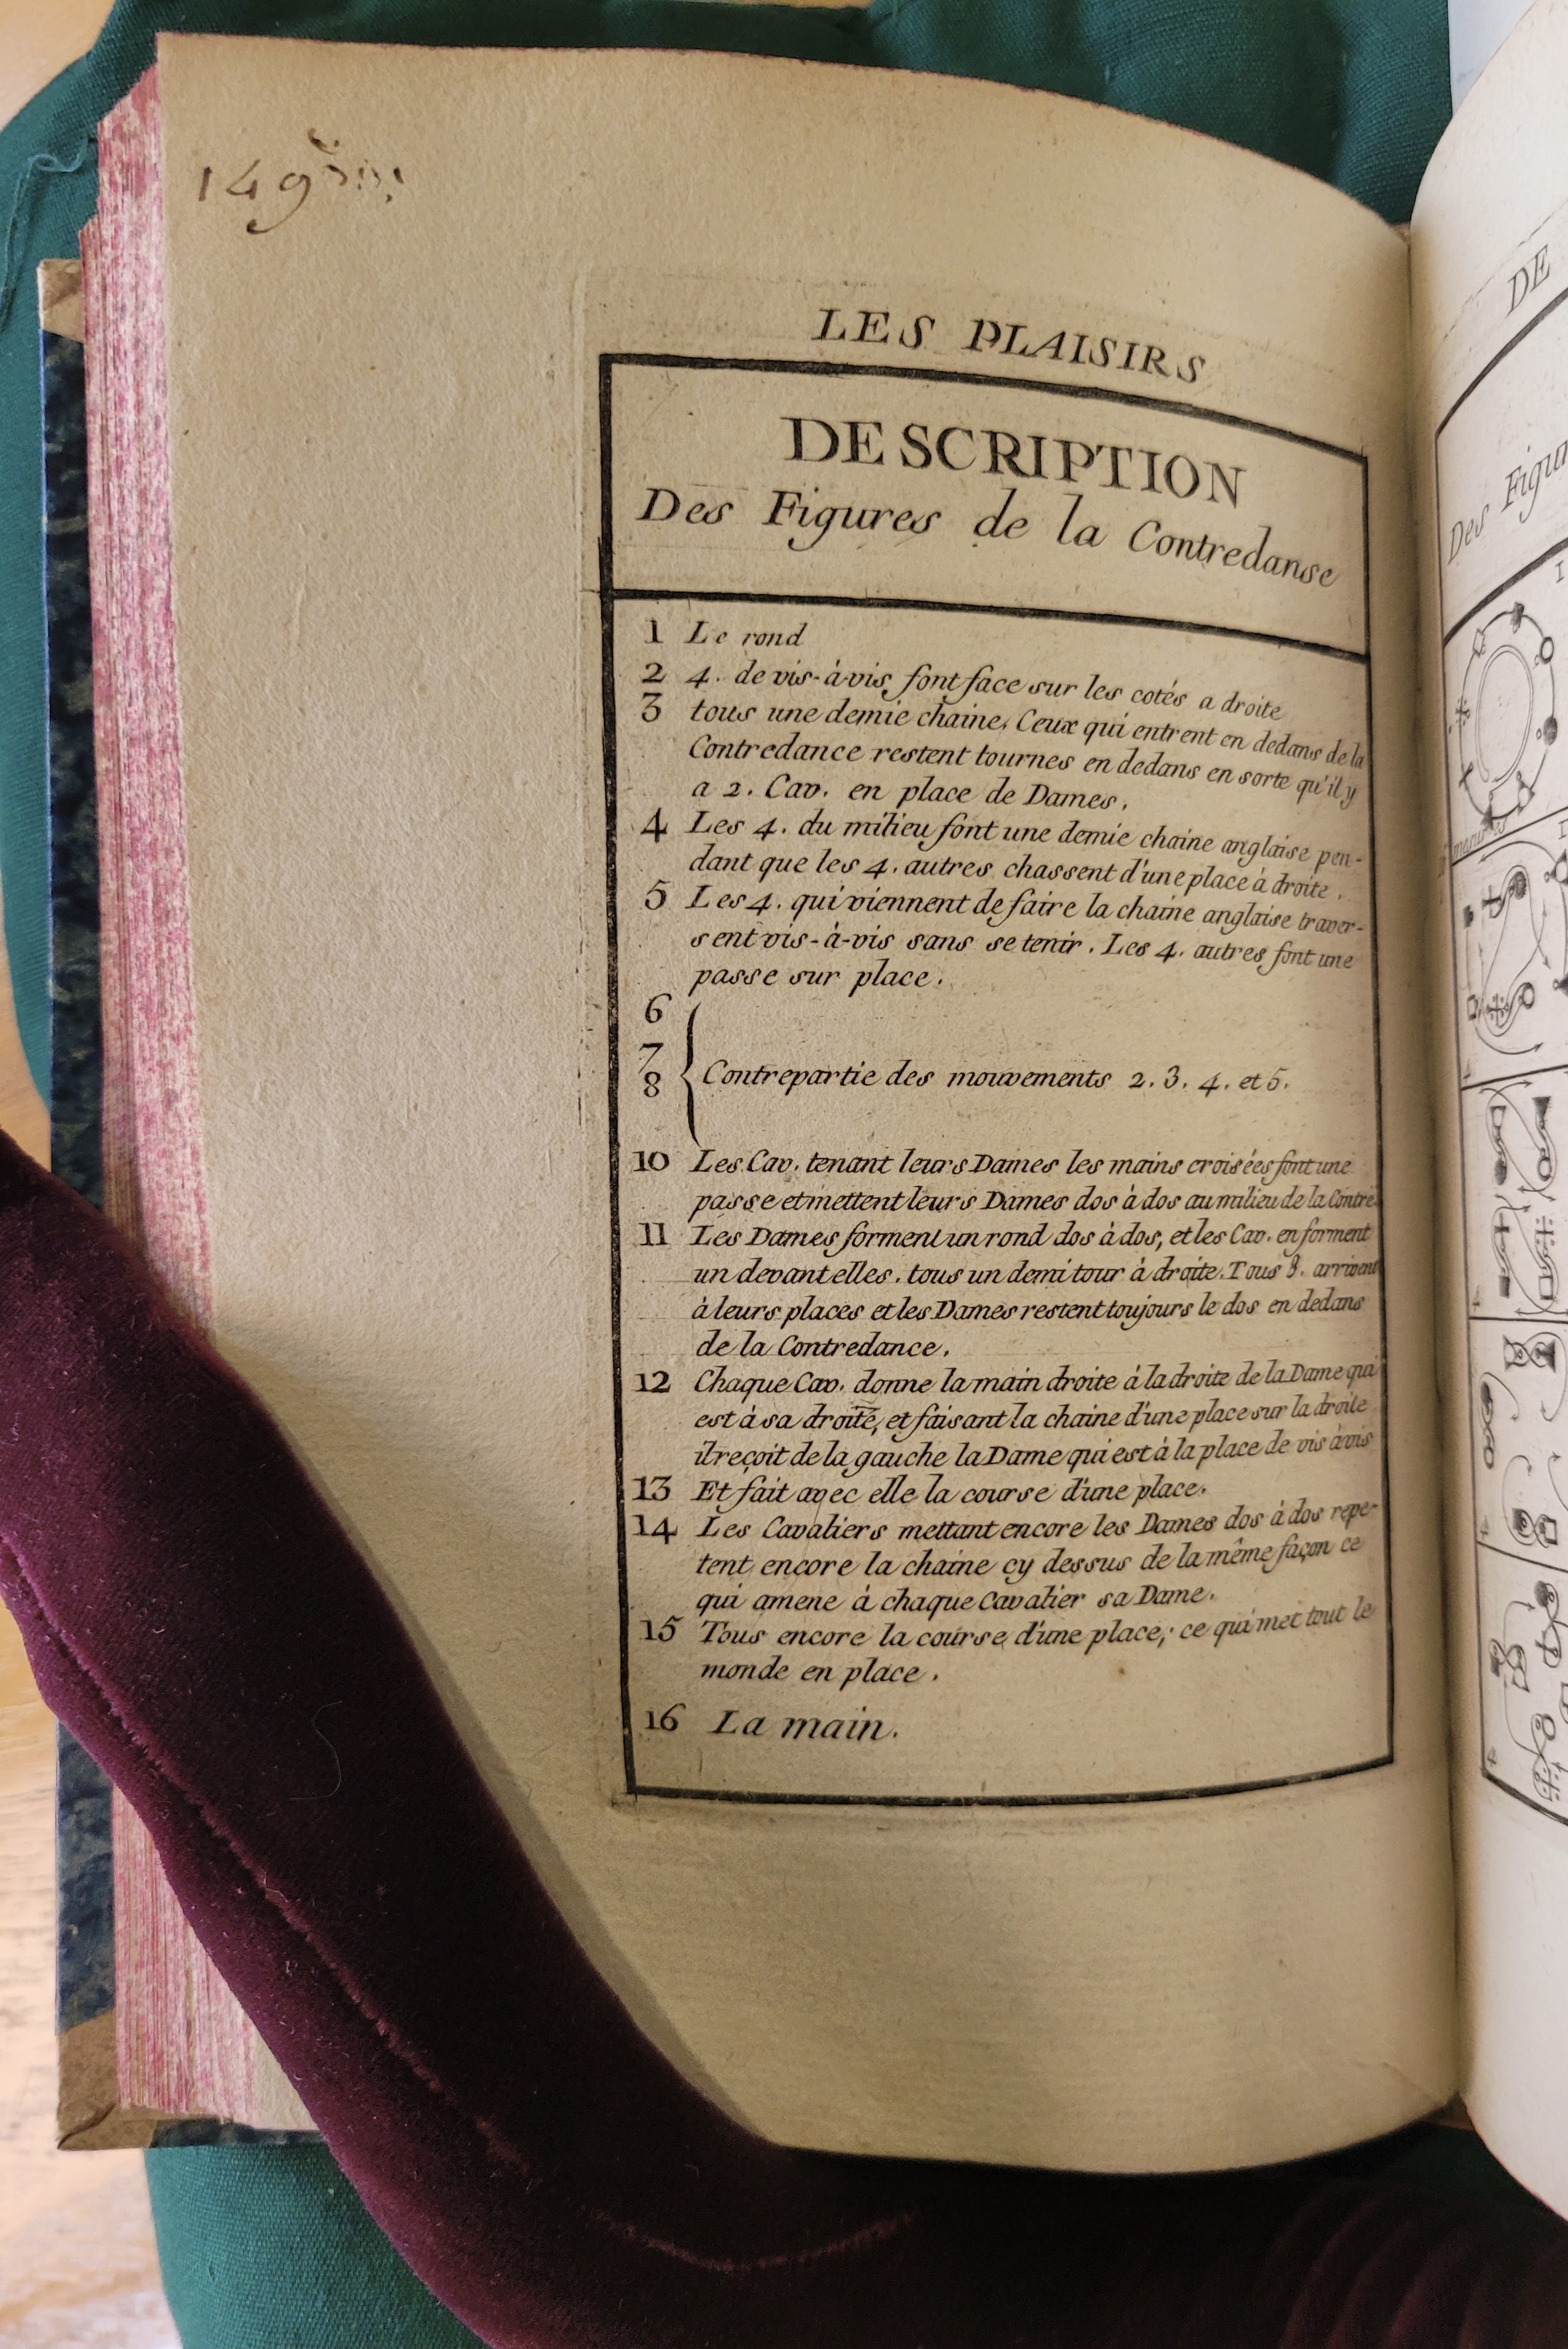 149
LES PLAISIRS
DESCRIPTION
Des Figures de la Contredanse
1 Le rond
2 4. de vis-à-vis font face sur les cotés a droite
3 tous une demie chaine. Ceux qui entrent en dedans de la
Contredance restent tournes en dedans en sorte qu'il y
a 2. Cav. en place de Dames.
4 Les 4. du milieu font une demie chaine anglaise pen-
dant que les 4. autres chassent d'une place à droite.
5 Les 4. qui viennent de faire la chaine anglaise traver-
sent vis-à-vis sans se tenir. Les 4. autres font une
passe sur place.
6
7
8 Contrepartie des mouvements 2. 3. 4. et 5.
10 Les Cav. tenant leurs Dames les mains croisées font une
passe et mettent leurs Dames dos à dos au milieu de la Contre.
11 Les Dames forment un rond dos à dos, et les Cav. en forment
un devant elles. tous un demi tour à droite. Tous 8. arrivent
à leurs places et les Dames restent toujours le dos en dedans
de la Contredance.
12 Chaque Cav. donne la main droite à la droite de la Dame qui
est à sa droite, et faisant la chaine d'une place sur la droite
il reçoit de la gauche la Dame qui est à la place de vis à vis
13 Et fait avec elle la course d'une place.
14 Les Cavaliers mettant encore les Dames dos à dos repe-
tent encore la chaine cy dessus de la même façon ce
qui amene à chaque Cavalier sa Dame.
15 Tous encore la course d'une place; ce qui met tout le
monde en place.
16 La main.
DE
Des Figu